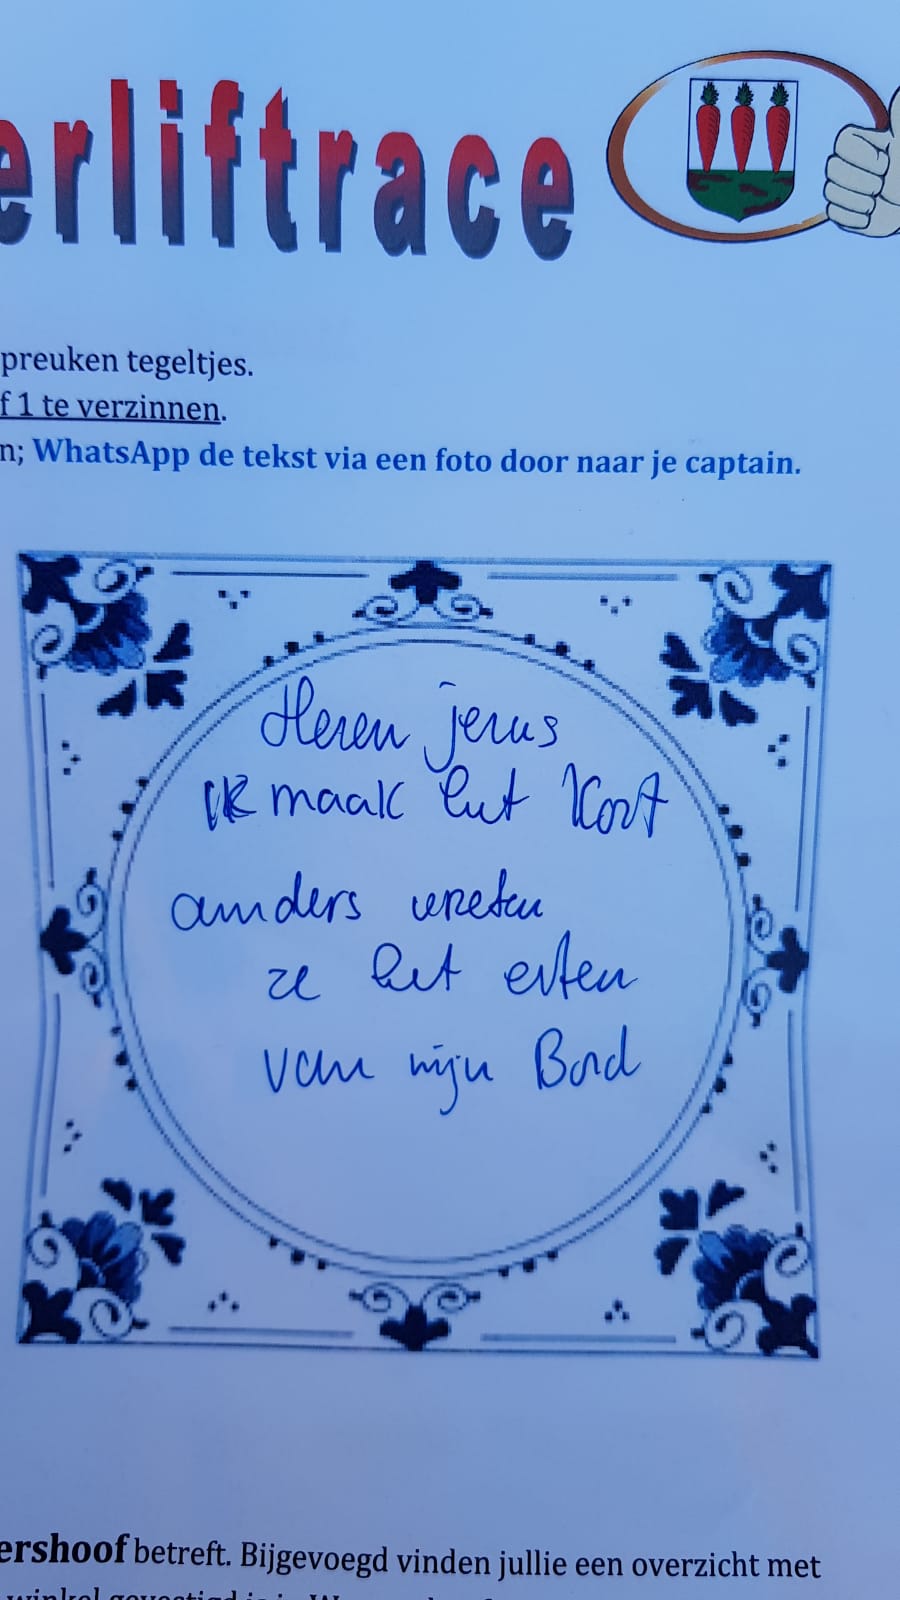 erliftrace
preuken tegeltjes.
f 1 te verzinnen.
n; WhatsApp de tekst via een foto door naar je captain.
Heren jezus
IK maak het Kort
anders vreten
ze het eten
van mijn Bord
ershoof betreft. Bijgevoegd vinden jullie een overzicht met